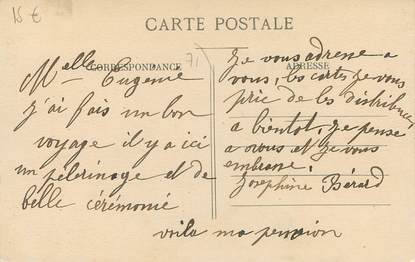 15 €
CARTE POSTALE
CORRESPONDANCE
71
ADRESSE
Melle Eugenie
j'ai fais un bon
voyage il y a ici
un pelerinage et de
belle cérémonie
voila ma pension
Je vous adresse a
vous, les cartes je vous
prie de les distribuer
a bientot, je pense
a vous et je vous
embrasse.
Josephine Bérard